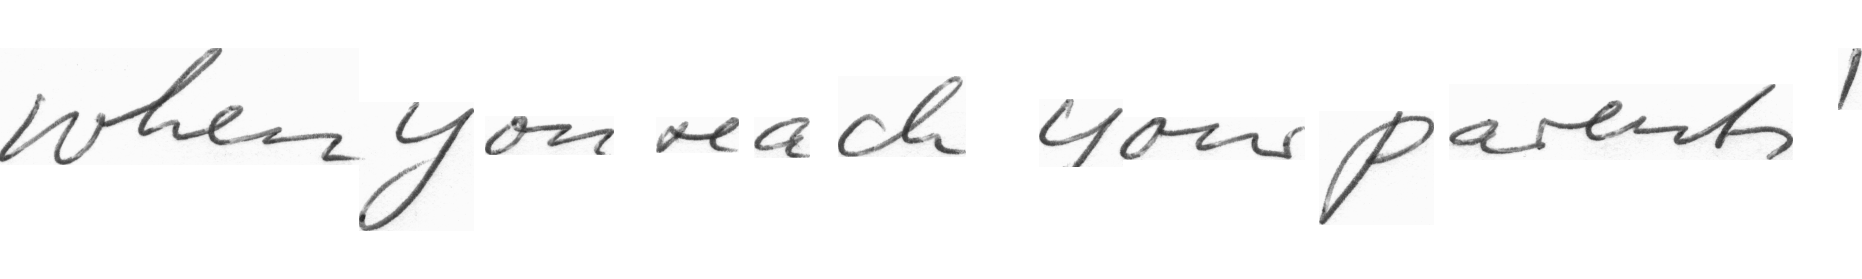 when you reach your parents'